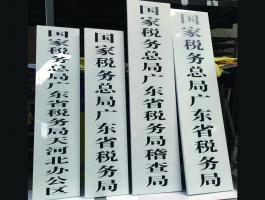 国家税务总局广东省税务局天河北办公区
国家税务总局广东省税务局
国家税务总局广东省税务局稽查局
国家税务总局广东省税务局